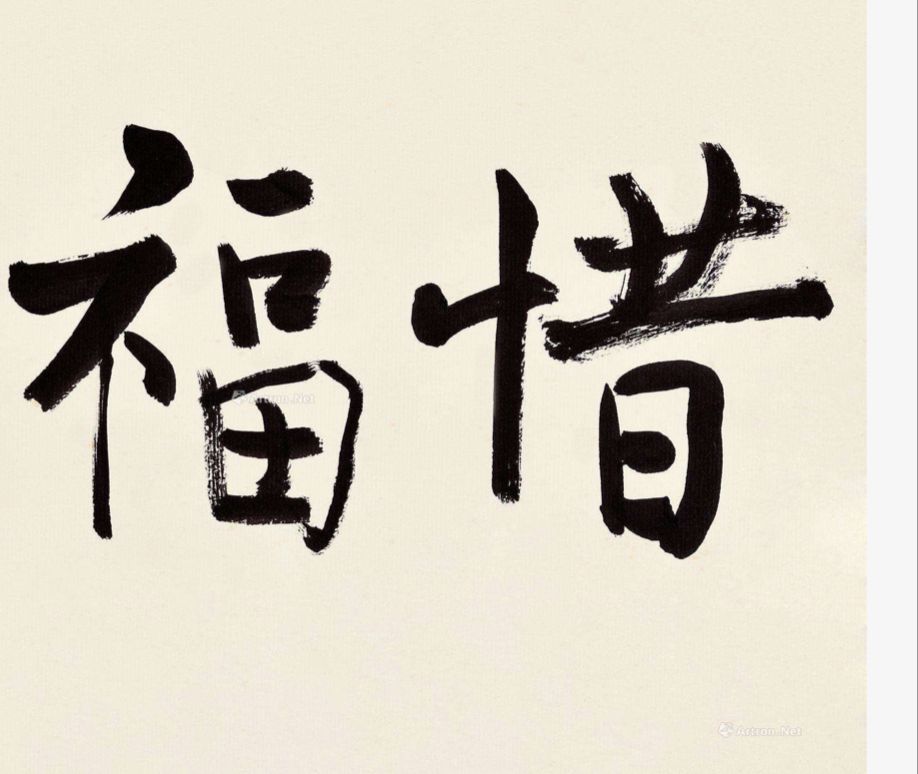 惜福
Artron.Net
Artron.Net